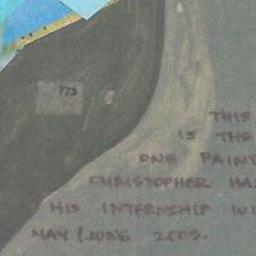 773
THIS
IS THE
ONE PAINT
CHRISTOPHER HA
HIS INTERNSHIP WI
MAY / JUNE 2005.